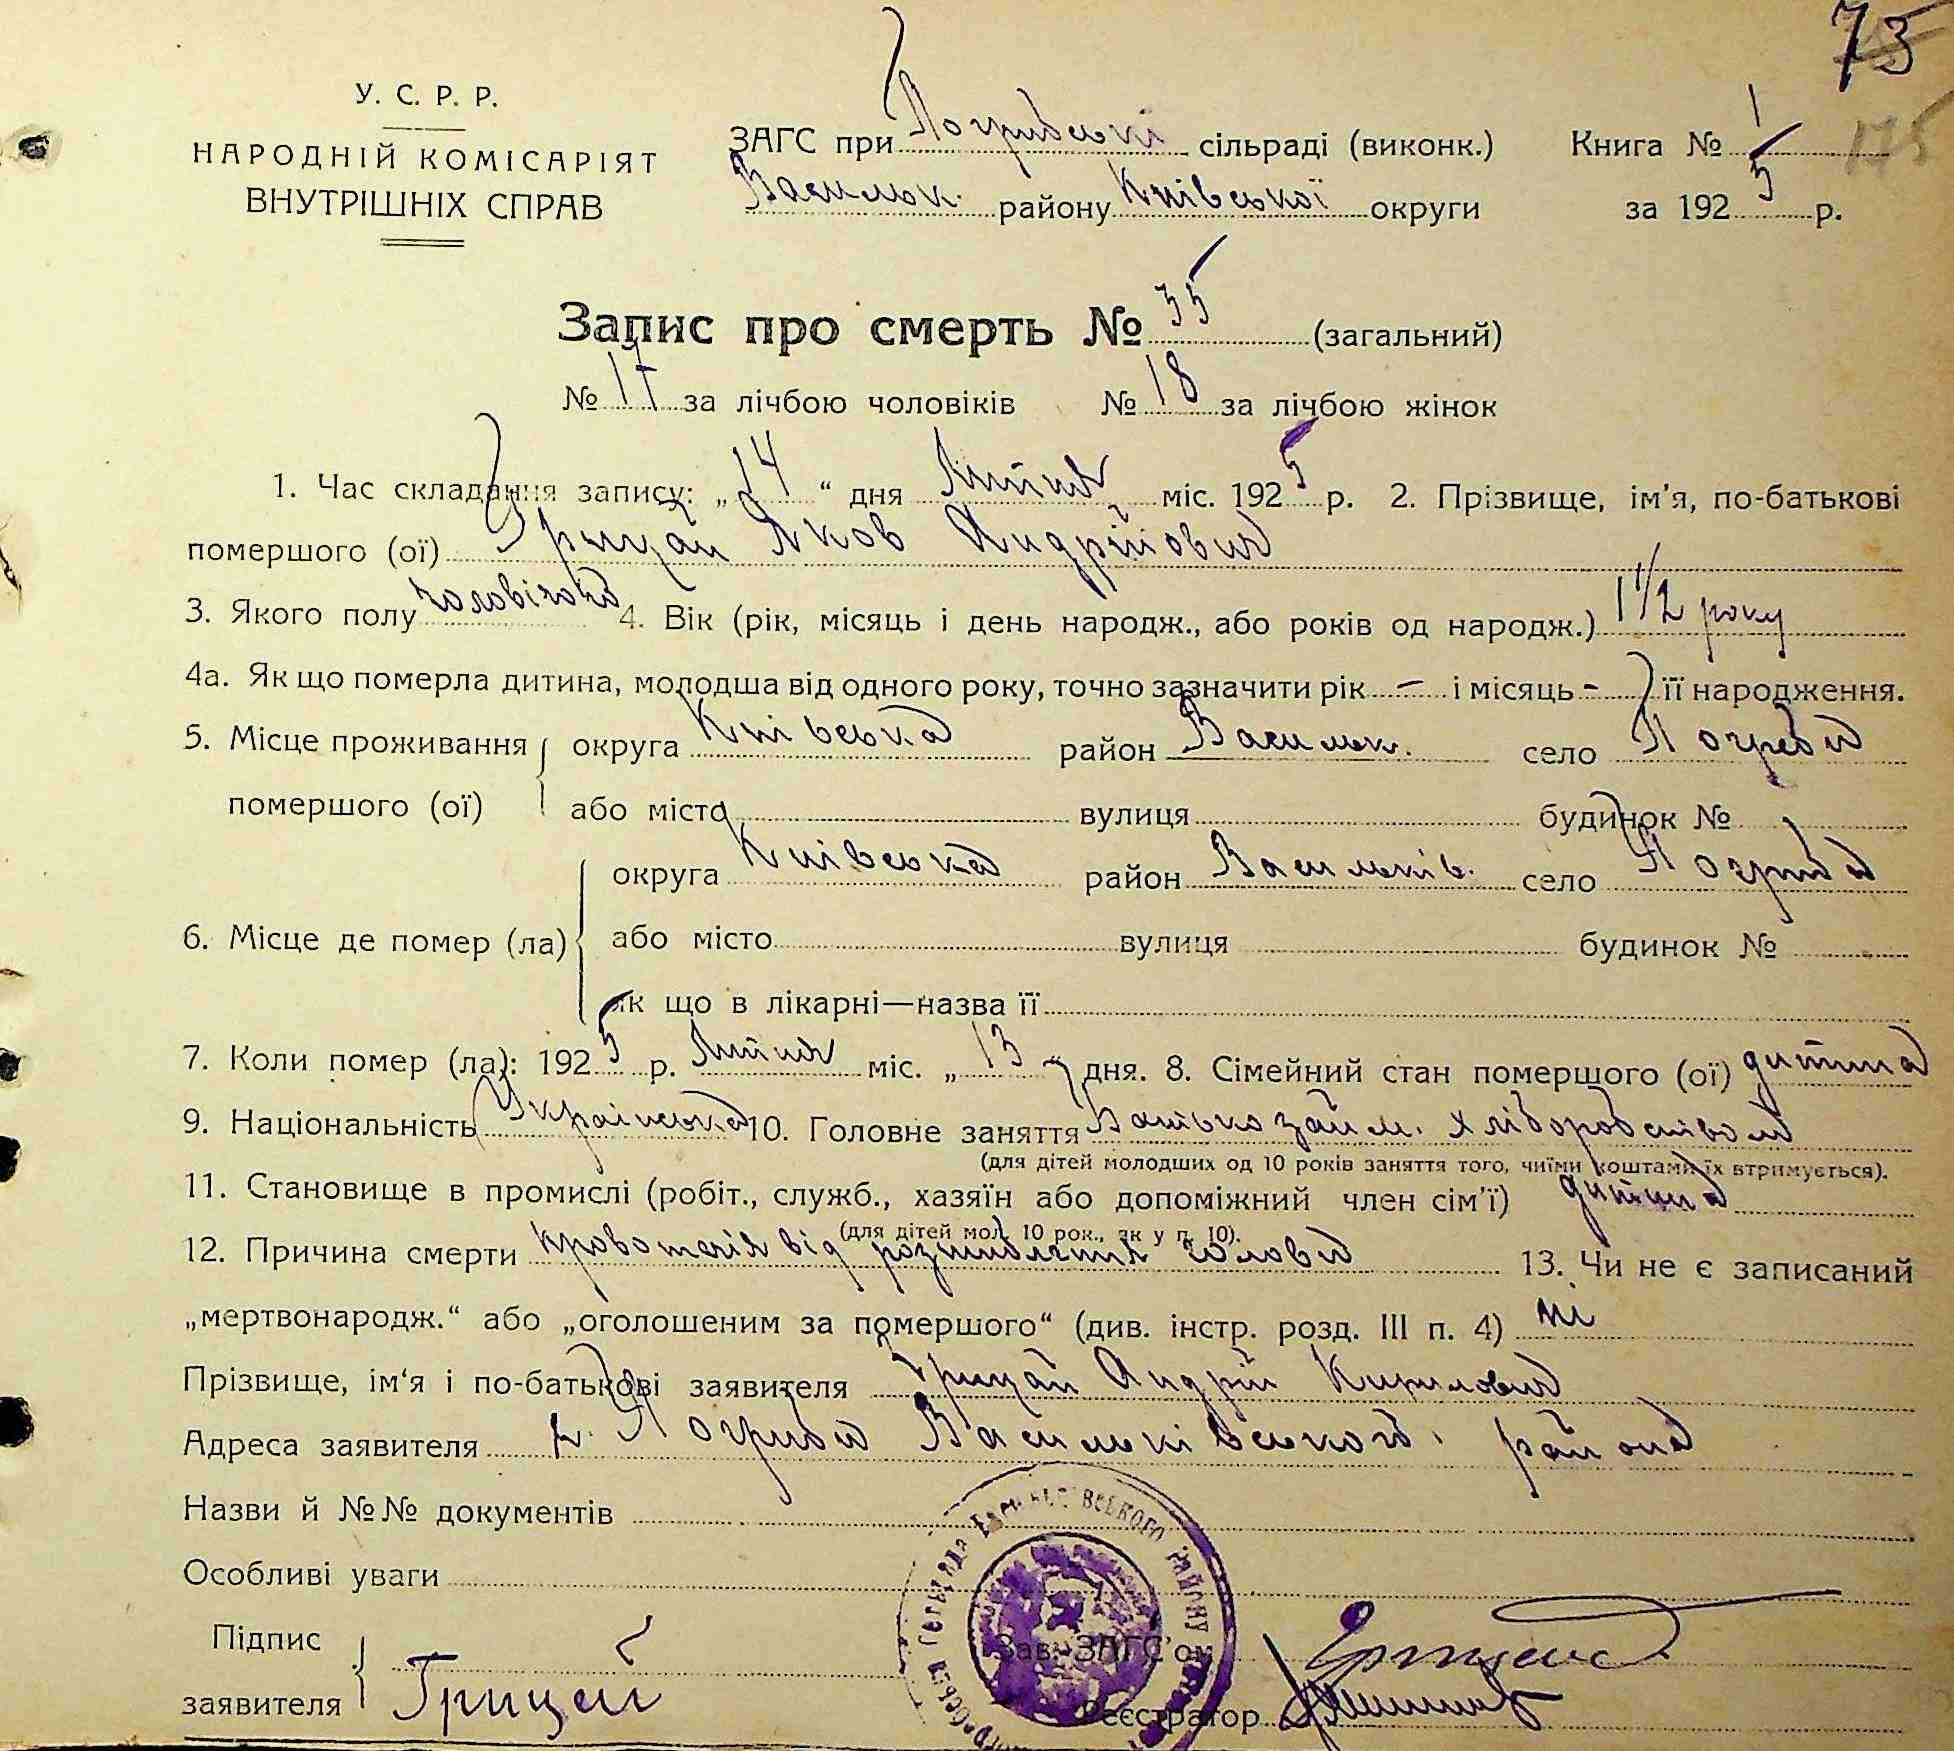 73
У. С. Р. Р.
НАРОДНІЙ КОМІСАРІЯТ
ВНУТРІШНІХ СПРАВ
ЗАГС при Погрибській сільраді (виконк.) Книга № 1
Васильк. району Київської округи за 1925 р.
Запис про смерть № 35 (загальний)
№ 17 за лічбою чоловіків № 18 за лічбою жінок
1. Час складання запису: „14“ дня Липня міс. 1925 р. 2. Прізвище, ім'я, по-батькові
помершого (ої) Грицай Яков Андрійович
3. Якого полу чоловічого 4. Вік (рік, місяць і день народж., або років од народж.) 1 1/2 року
4а. Як що померла дитина, молодша від одного року, точно зазначити рік — і місяць - її народження.
5. Місце проживання округа Київська район Васильк. село Погреби
помершого (ої) або місто вулиця будинок №
округа Київська район Васильків. село Погриби
6. Місце де помер (ла) або місто вулиця будинок №
як що в лікарні—назва її
7. Коли помер (ла): 1925 р. Липня міс. „13“ дня. 8. Сімейний стан помершого (ої) дитина
9. Національність Українська 10. Головне заняття Батько займ. хліборобством
(для дітей молодших од 10 років заняття того, чиїми коштами їх втримується).
11. Становище в промислі (робіт., служб., хазяїн або допоміжний член сім'ї) дитина
(для дітей мол. 10 рок., як у п. 10).
12. Причина смерти кровотечія від голови 13. Чи не є записаний
„мертвонародж.“ або „оголошеним за помершого“ (див. інстр. розд. III п. 4) ні
Прізвище, ім'я і по-батькові заявителя Грицай Андрій Кирилович
Адреса заявителя с. Погриби Васильківського району
Назви й №№ документів
Особливі уваги
Підпис
заявителя Грицай
Зав. ЗАГС'ом
Реєстратор